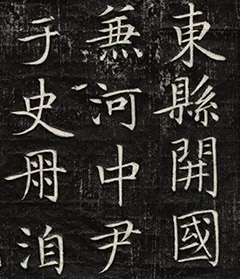 東縣開國
兼河中尹
于史冊洎